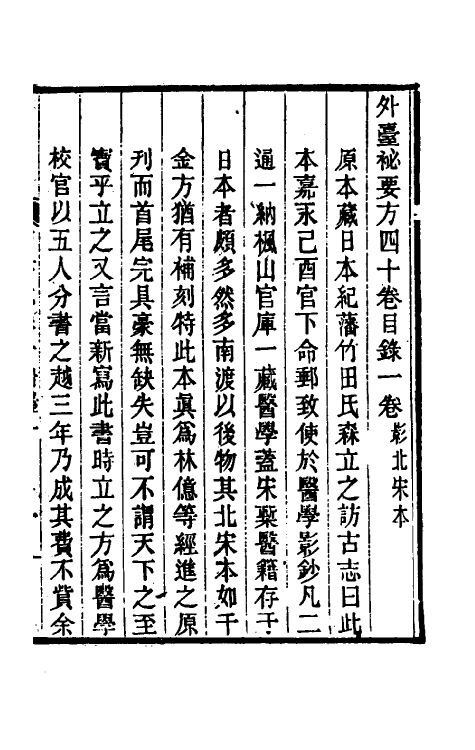 外臺祕要方四十卷目錄一卷影北宋本
原本藏日本紀藩竹田氏森立之訪古志曰此
本嘉永己酉官下命郵致使於醫學影鈔凡二
逼一納楓山官庫一藏醫學蓋宋槧醫籍存于
日本者頗多然多南渡以後物其北宋本如千
金方猶有補刻特此本眞爲林億等經進之原
刋而首尾完具豪無缺失豈可不謂天下之至
寶乎立之又言當新寫此書時立之方爲醫學
校官以五人分書之越三年乃成其費不貲余